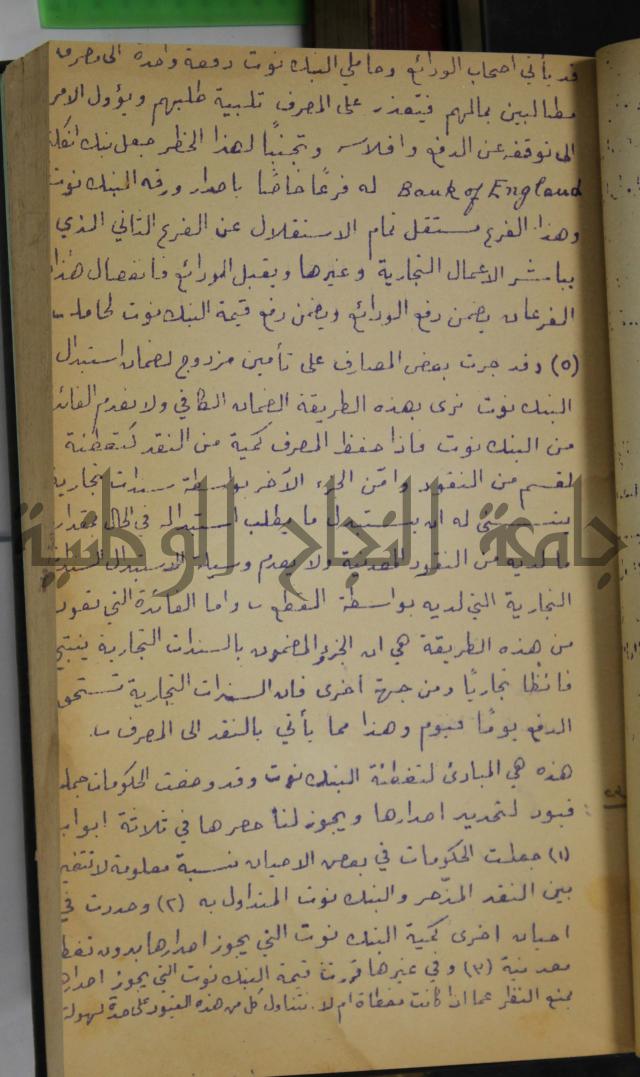 قد يأتي اصحاب الودائع وحاملي البنك نوت دفعة واحدة الى المصرف
مطالبين بمالهم فيتعذر على المصرف تلبية طلبهم ويؤول الامر
الى توقفه عن الدفع وافلاسه وتجنبًا لهذا الخطر جعل بنك انكلترا
Bank of England له فرعًا خاصًا باصدار ورقه البنك نوت
وهذا الفرع مستقل تمام الاستقلال عن الفرع الثاني الذي
يباشر الاعمال التجارية وغيرها ويقبل الودائع فانفصال هذا
الفرعان يضمن دفع الودائع ويضمن دفع قيمة البنك نوت لحامله
(٥) وقد جرت بعض المصارف على تأمين مزدوج لضمان استبدال
البنك نوت نرى بهذه الطريقة الضمان الكافي ولا نعدم الفائدة
من البنك نوت فاذا حفظ المصرف كمية من النقد كتغطئة
لقسم من النقود وامّن الجزء الآخر بواسطة سندات تجارية
يتسنى له ان يستبدل ما يطلب استبداله في الحال بمقدار
ما لديه من النقود المعدنية ولا يعدم وسيلة الاستبدال
التجارية التي لديه بواسطة القطع واما الفائدة التي تعود
من هذه الطريقة هي ان الجزء المضمون بالسندات التجارية ينتج
فائظًا تجاريًا ومن جهة اخرى فان السندات التجارية تستحق
الدفع يومًا فيوم وهذا مما يأتي بالنقد الى المصرف
هذه هي المبادئ لتغطئة البنك نوت وقد وضعت الحكومات جملة
قيود لتحديد اصدارها ويجوز لنا حصرها في ثلاثة ابواب
(١) جعلت الحكومات في بعض الاحيان نسبة معلومة لا تتغير
بين النقد المدّخر والبنك نوت المتداول به (٢) وحددت في
احيان اخرى كمية البنك نوت التي يجوز اصدارها بدون تغطئة
معدنية (٣) وفي غيرها قررت قيمة البنك نوت التي يجوز اصدارها
بمنع النظر عما اذا كانت مغطاة ام لا. نتناول كل من هذه القيود على حدة لسهولة
جامعة النجاح الوطنية